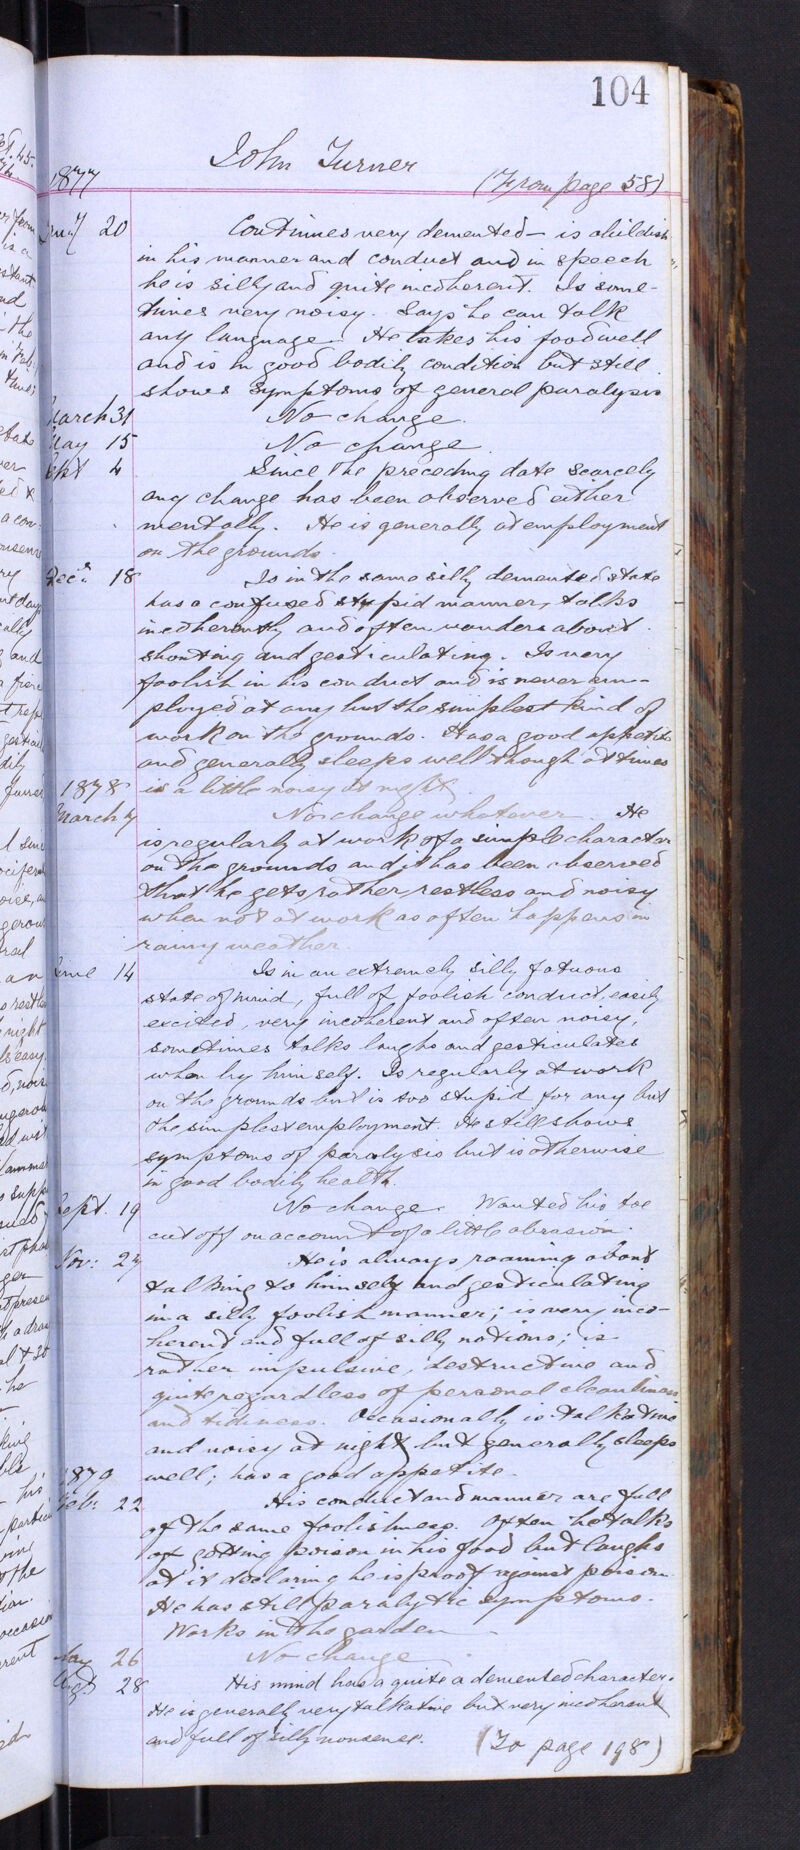 104
John Turner
1877
(From page 58)
Jany 20 Continues very demented - is childish
in his manner and conduct and in speech
he is silly and quite incoherent. Is some-
times very noisy. Says he can talk
any language. He takes his food well
and is in good bodily condition but still
shows symptoms of general paralysis
March 31 No change.
May 15 No change
Sept 4 Since the preceding date scarcely
any change has been observed either
mentally. He is generally at employment
on the grounds.
Decr 18 Is in the same silly demented state
has a confused stupid manner, talks
incoherently and often wanders about
shouting and gesticulating. Is very
foolish in his conduct and is never em-
ployed at any but the simplest kind of
work on the grounds. Has a good appetite
and generally sleeps well though at times
1878 is a little noisy at night
March 7 No change whatever. He
is regularly at work of a simple character
on the grounds and it has been observed
that he gets rather restless and noisy
when not at work as often happens in
rainy weather.
June 14 Is in an extremely silly fatuous
state of mind, full of foolish conduct, easily
excited, very incoherent and often noisy,
sometimes talks laughs and gesticulates
when by himself. Is regularly at work
on the grounds but is too stupid for any but
the simplest employment. He still shows
symptoms of paralysis but is otherwise
in good bodily health.
Sept. 19 No change. Wanted his toe
cut off on account of a little abrasion.
Nov: 27 He is always roaming about
talking to himself and gesticulating
in a silly foolish manner; is very inco-
herent and full of silly notions; is
rather impulsive, destructive and
quite regardless of personal cleanliness
and tidiness. Occasionally is talkative
and noisy at night but generally sleeps
1879 well; has a good appetite.
Feb: 22 His conduct and manner are full
of the same foolishness. Often he talks
of getting poison in his food but laughs
at it declaring he is proof against poison.
He has still paralytic symptoms.
Works in the garden
May 26 No change
Augt 28 His mind has a quite a demented character.
He is generally very talkative but very incoherent
and full of silly nonsense. (To page 198)